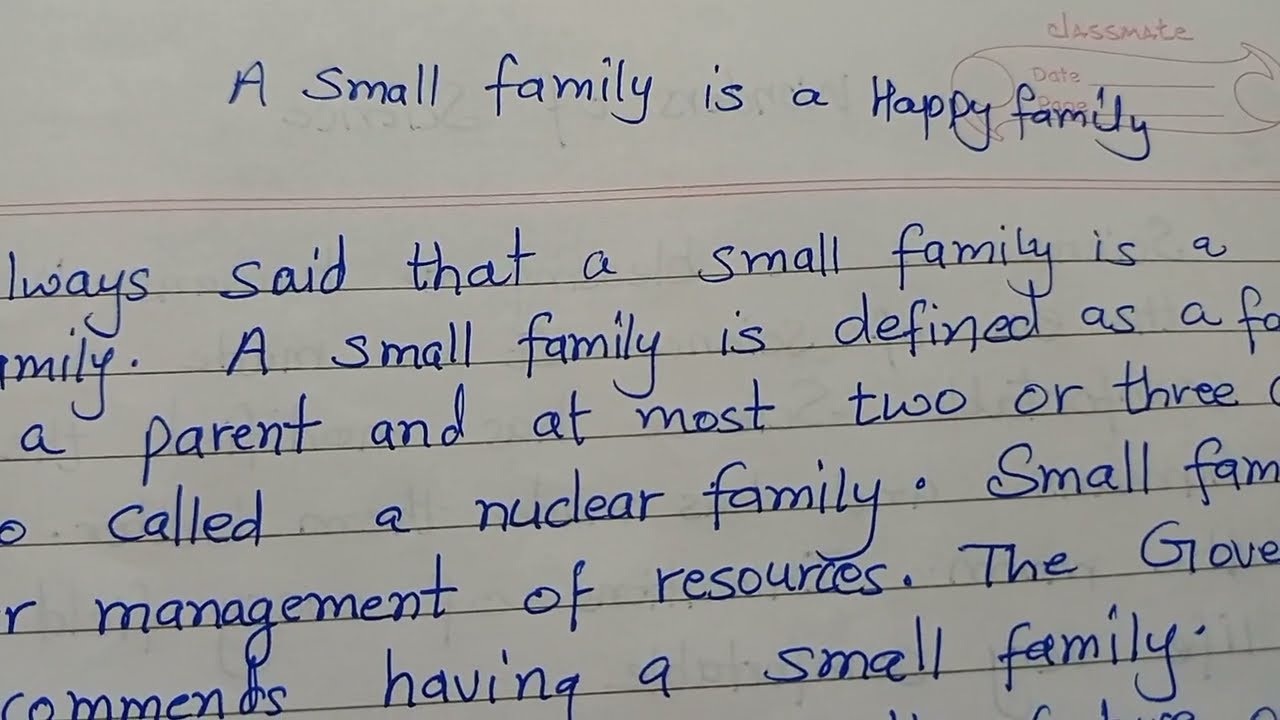 classmate
Date
A small family is a Happy family
lways said that a small family is a
mily. A small family is defined as a fa
a parent and at most two or three
o called a nuclear family. Small fam
r management of resources. The Gove
commends having a small family.